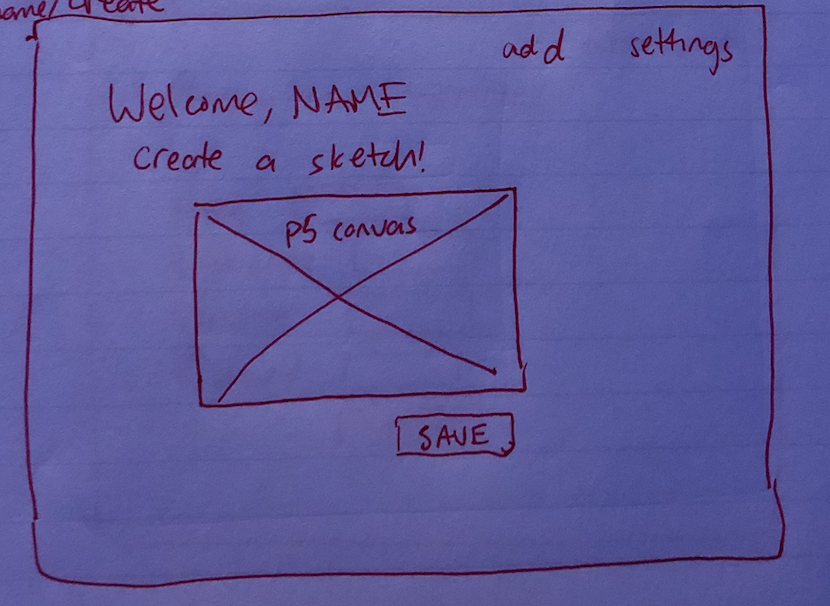 /create
add settings
Welcome, NAME
create a sketch!
p5 canvas
SAVE